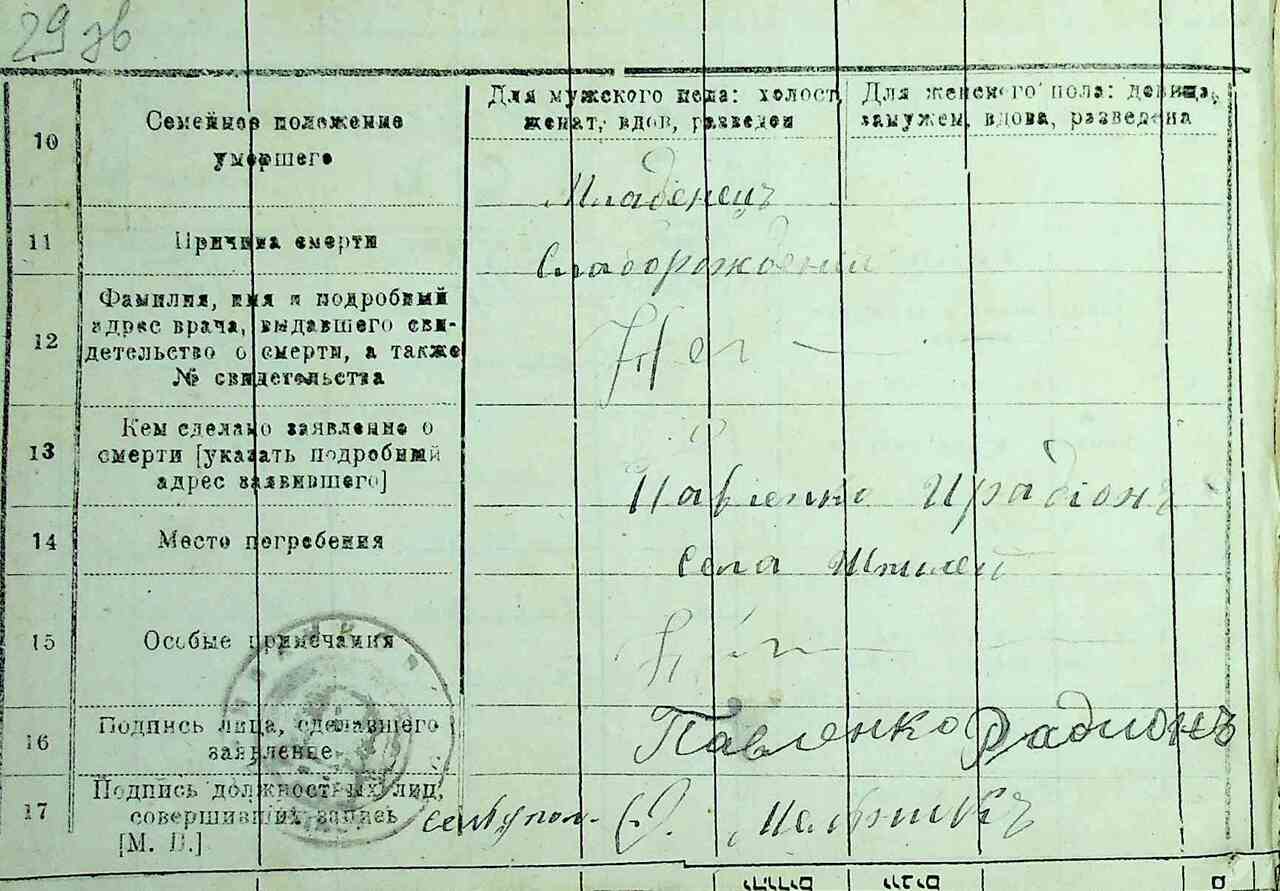 29 зв
10
Семейное положение
умершего
Для мужского пола: холост,
женат, вдов, разведен
Для женского пола: девица,
замужем, вдова, разведена
Младенецъ
11
Причина смерти
Слаборождения
12
Фамилия, имя и подробный
адрес врача, выдавшего сви-
детельство о смерти, а также
№ свидетельства
Нет
13
Кем сделано заявление о
смерти [указать подробный
адрес заявившего]
Павленко Ирадіонъ
14
Место погребения
села
15
Особые примечания
Нет
16
Подпись лица, сделавшего
заявление
Павленко Радионъ
17
Подпись должностных лиц,
совершивших запись
[М. П.]